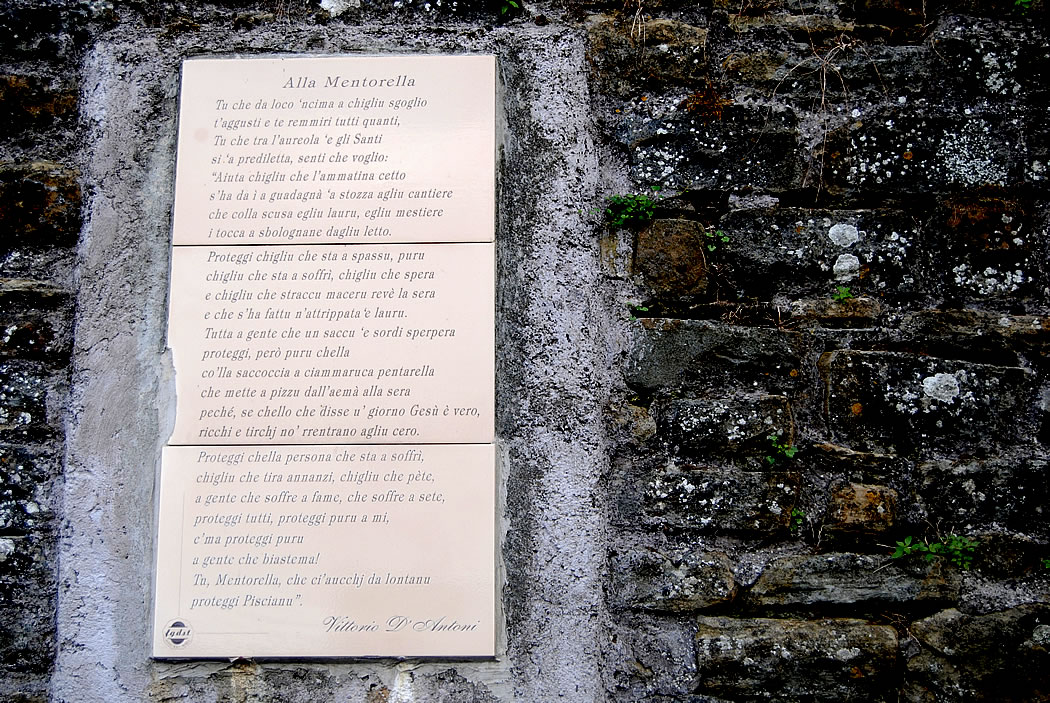 Alla Mentorella
Tu che da loco ‘ncima a chigliu sgoglio
t’aggusti e te remmiri tutti quanti,
Tu che tra l’aureola ‘e gli Santi
si ‘a prediletta, senti che voglio:
“Aiuta chigliu che l’ammatina cetto
s’ha da ì a guadagnà ‘a stozza agliu cantiere
che colla scusa egliu lauru, egliu mestiere
i tocca a sbolognane dagliu letto.
Proteggi chigliu che sta a spassu, puru
chigliu che sta a soffrì, chigliu che spera
e chigliu che straccu maceru revè la sera
e che s’ha fattu n’attrippata ‘e lauru.
Tutta a gente che un saccu ‘e sordi sperpera
proteggi, però puru chella
co’lla saccoccia a ciammaruca pentarella
che mette a pizzu dall’aemà alla sera
peché, se chello che disse u’ giorno Gesù è vero,
ricchi e tirchj no’ rrentrano agliu cero.
Proteggi chella persona che sta a soffrì,
chigliu che tira annanzi, chigliu che pète,
a gente che soffre a fame, che soffre a sete,
proteggi tutti, proteggi puru a mi,
c’ma proteggi puru
a gente che biastema!
Tu, Mentorella, che ci’aucchj da lontanu
proteggi Piscianu”.
Vittorio D’Antoni